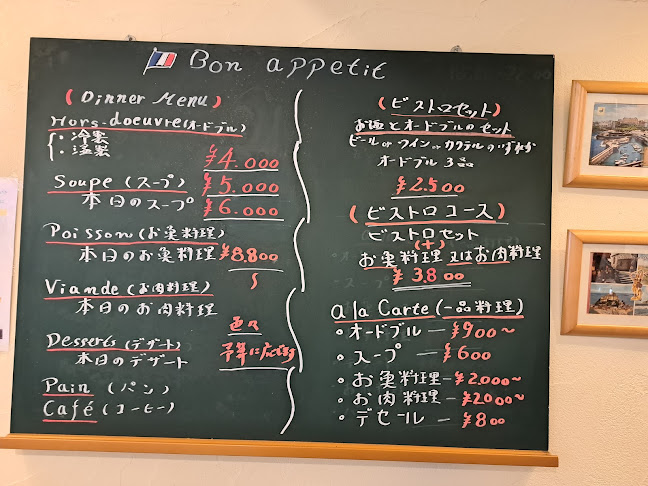 Bon appetit
(Dinner Menu)
Hors-doeuvre(オードブル)
{:冷製
:温製
¥4.000
Soupe (スープ) ¥5.000
本日のスープ ¥6.000
Poisson(お魚料理)
本日のお魚料理 ¥8.800
Viande(お肉料理)
本日のお肉料理
色々
Desserts(デザート) 予算に応じます
本日のデザート
Pain (パン)
Café (コーヒー)
(ビストロセット)
お酒とオードブルのセット
ビール or ワイン or カクテルのいずれか
オードブル 3品
¥2.500
(ビストロコース)
ビストロセット
(+)
お魚料理 又はお肉料理
¥3.800
a la Carte (一品料理)
・オードブル — ¥900~
・スープ — ¥600
・お魚料理 — ¥2.000~
・お肉料理 — ¥2.000~
・デセール — ¥800